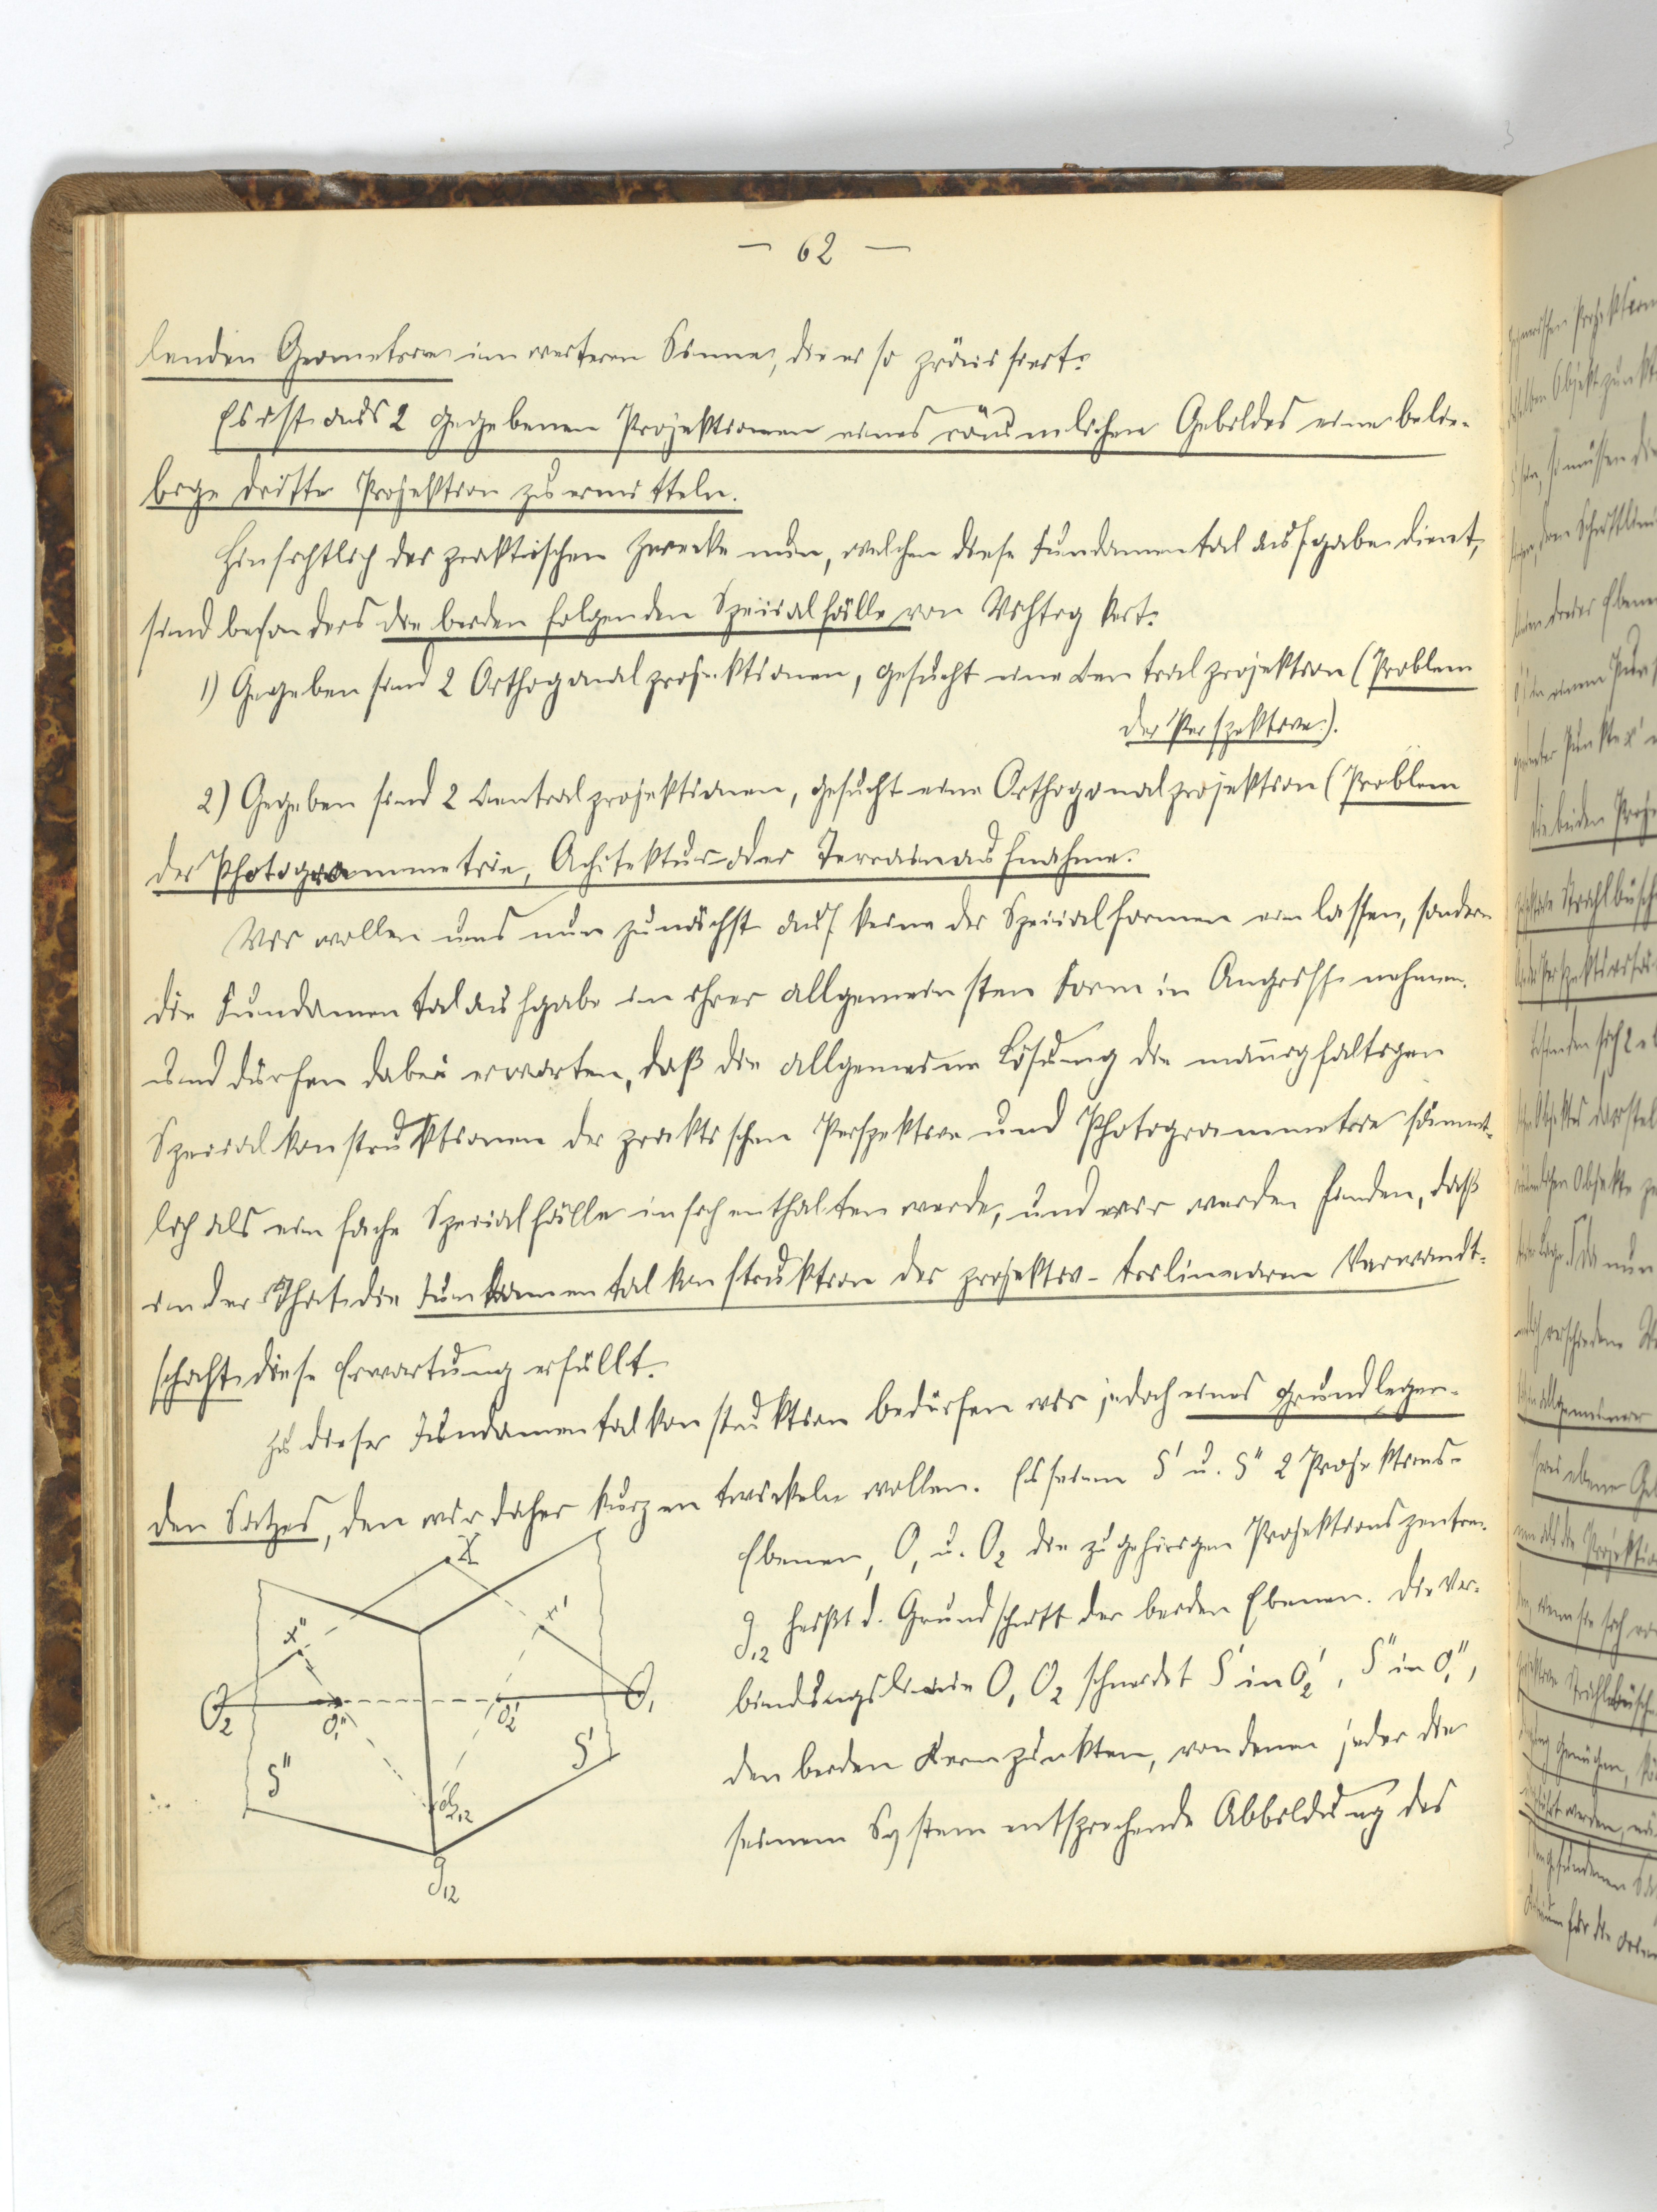 — 62 —
lenden Geometrie im weiteren Sinne, die es so präcisiert:
Es ist aus 2 gegebenen Projektionen eines räumlichen Gebildes eine belie-
bige dritte Projektion zu ermitteln.
Hinsichtlich der praktischen Zwecke nun, welchen diese Fundamentalaufgabe dient,
sind besonders die beiden folgenden Specialfälle von Wichtigkeit:
1) Gegeben sind 2 Orthogonalprojektionen, gesucht eine Centralprojektion (Problem
der Perspektive).
2) Gegeben sind 2 Centralprojektionen, gesucht eine Orthogonalprojektion (Problem
der Photogrammetrie, Achitektur- oder Terrainaufnahme.
Wir wollen uns nun zunächst auf keine der Specialformen einlassen, sondern
die Fundamentalaufgabe in ihrer allgemeinsten Form in Angriff nehmen.
und dürfen dabei erwarten, daß die allgemeine Lösung die mannigfaltigen
Specialkonstruktionen der praktischen Perspektive und Photogrammetrie sämmt-
lich als einfache Specialfälle in sich enthalten werde, und wir werden finden, daß
in der That die Fundamentalkonstruktion der projektiv-trilinearen Verwandt-
schaft diese Erwartung erfüllt.
Zu dieser Fundamentalkonstruktion bedürfen wir jedoch eines grundlegen-
den Satzes, den wir daher kurz entwickeln wollen. Es seien S' u. S'' 2 Projektions-
Ebenen, O₁ u. O₂ die zugehörigen Projektionszentren.
g₁₂ heißt d. Grundschnitt der beiden Ebenen. Die Ver-
bindungslinie O₁ O₂ schneidet S' in O₂', S'' in O₁'',
den beiden Kernpunkten, von denen jeder die
seinem System entsprechende Abbildung des
X
x''
x'
O₂
O₁''
O₂'
O₁
S''
S'
g₁₂